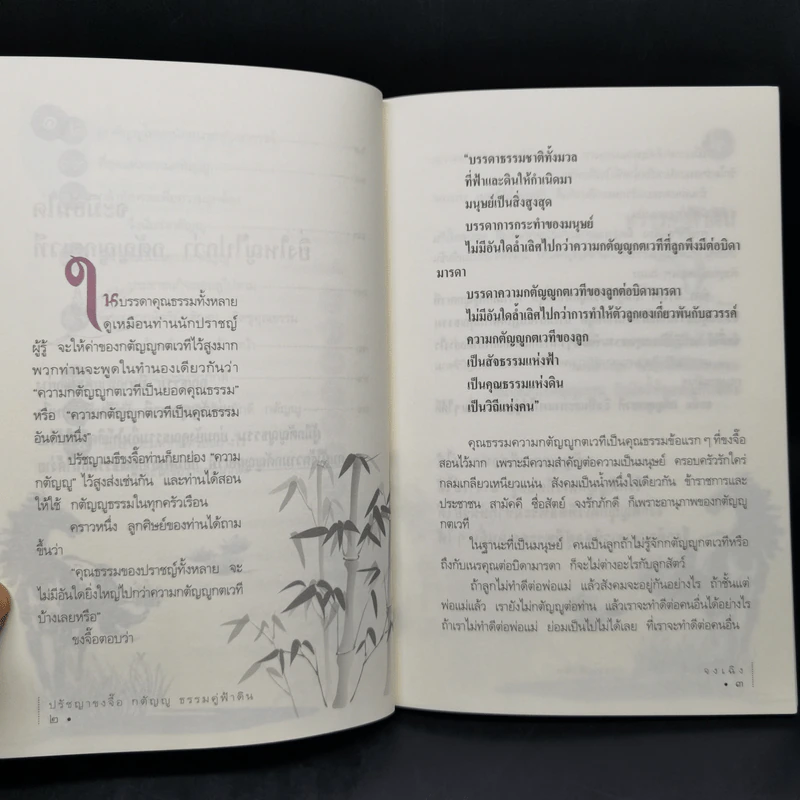 ในบรรดาคุณธรรมทั้งหลาย
ดูเหมือนท่านนักปราชญ์
ผู้รู้ จะให้ค่าของกตัญญูกตเวทีไว้สูงมาก
พวกท่านจะพูดในทำนองเดียวกันว่า
"ความกตัญญูกตเวทีเป็นยอดคุณธรรม"
หรือ "ความกตัญญูกตเวทีเป็นคุณธรรม
อันดับหนึ่ง"
ปรัชญาเมธีขงจื๊อท่านก็ยกย่อง "ความ
กตัญญู" ไว้สูงส่งเช่นกัน และท่านได้สอน
ให้ใช้ กตัญญูธรรมในทุกครัวเรือน
คราวหนึ่ง ลูกศิษย์ของท่านได้ถาม
ขึ้นว่า
"คุณธรรมของปราชญ์ทั้งหลาย จะ
ไม่มีอันใดยิ่งใหญ่ไปกว่าความกตัญญูกตเวที
บ้างเลยหรือ"
ขงจื๊อตอบว่า
ปรัชญาขงจื๊อ กตัญญู ธรรมคู่ฟ้าดิน
๒ •
"บรรดาธรรมชาติทั้งมวล
ที่ฟ้าและดินให้กำเนิดมา
มนุษย์เป็นสิ่งสูงสุด
บรรดาการกระทำของมนุษย์
ไม่มีอันใดล้ำเลิศไปกว่าความกตัญญูกตเวทีที่ลูกพึงมีต่อบิดา
มารดา
บรรดาความกตัญญูกตเวทีของลูกต่อบิดามารดา
ไม่มีอันใดล้ำเลิศไปกว่าการทำให้ตัวลูกเองเกี่ยวพันกับสวรรค์
ความกตัญญูกตเวทีของลูก
เป็นสัจธรรมแห่งฟ้า
เป็นคุณธรรมแห่งดิน
เป็นวิถีแห่งคน"
คุณธรรมความกตัญญูกตเวทีเป็นคุณธรรมข้อแรก ๆ ที่ขงจื๊อ
สอนไว้มาก เพราะมีความสำคัญต่อความเป็นมนุษย์ ครอบครัวรักใคร่
กลมเกลียวเหนียวแน่น สังคมเป็นน้ำหนึ่งใจเดียวกัน ข้าราชการและ
ประชาชน สามัคคี ซื่อสัตย์ จงรักภักดี ก็เพราะอานุภาพของกตัญญู
กตเวที
ในฐานะที่เป็นมนุษย์ คนเป็นลูกถ้าไม่รู้จักกตัญญูกตเวทีหรือ
ถึงกับเนรคุณต่อบิดามารดา ก็จะไม่ต่างอะไรกับลูกสัตว์
ถ้าลูกไม่ทำดีต่อพ่อแม่ แล้วสังคมจะอยู่กันอย่างไร ถ้าขั้นแต่
พ่อแม่แล้ว เรายังไม่กตัญญูต่อท่าน แล้วเราจะทำดีต่อคนอื่นได้อย่างไร
ถ้าเราไม่ทำดีต่อพ่อแม่ ย่อมเป็นไปไม่ได้เลย ที่เราจะทำดีต่อคนอื่น
จงเฉิง
• ๓